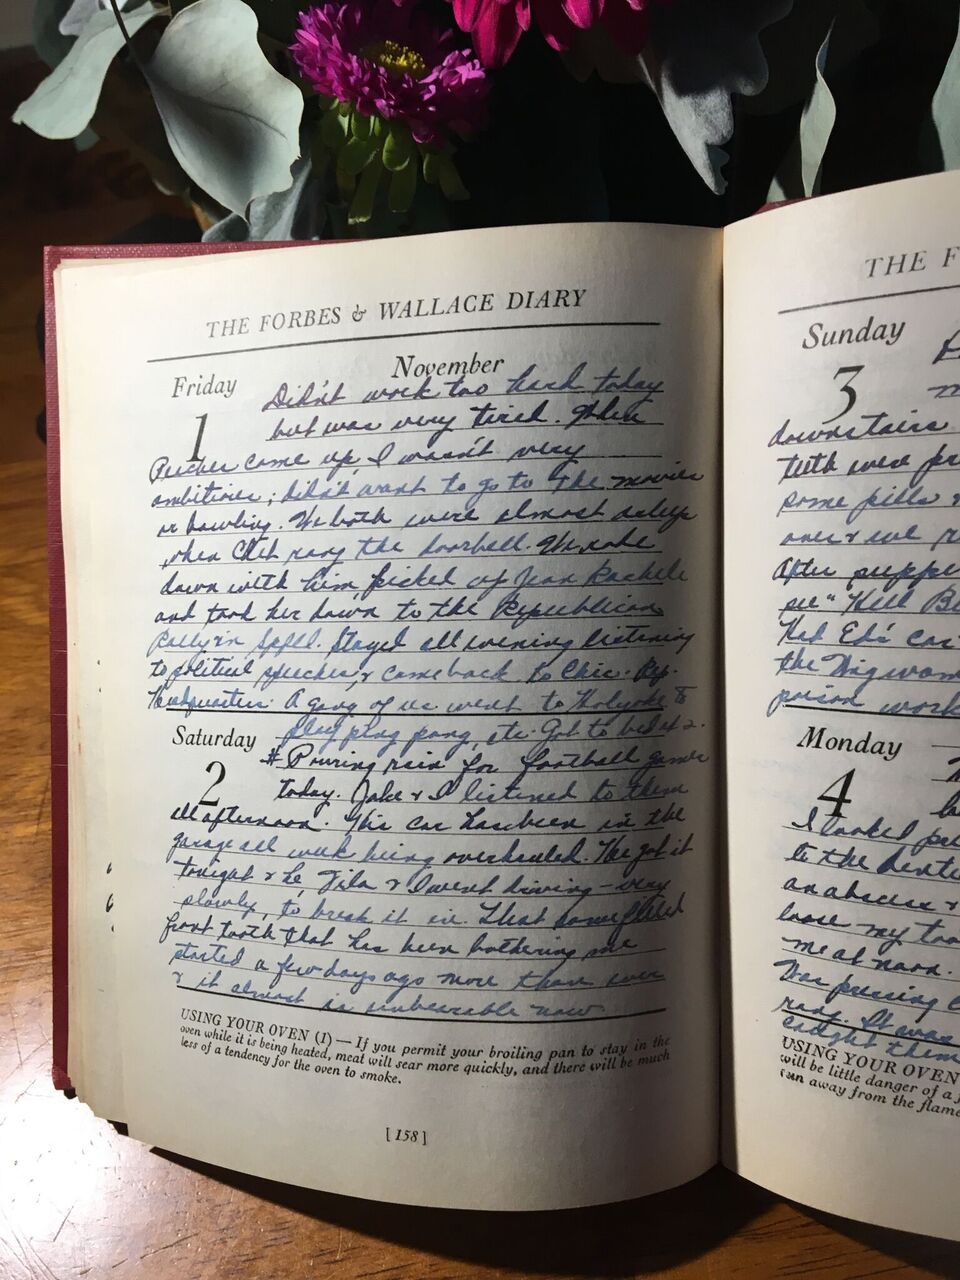 THE FORBES & WALLACE DIARY
November
Friday
1
Didn't work too hard today
but was very tired. When
come up, I wasn't very
ambitious; didn't want to go to the movies
or bowling. We both were almost asleep
when Chet rang the doorbell. We rode
down with him, picked up Jean
and took her down to the Republican
Rally in Spfld. Stayed all evening listening
to political speeches, & came back to Chic. Rep.
Headquarters. A gang of us went to Holyoke to
play ping pong, etc. Got to bed at 2.
Saturday
2
# Pouring rain for football games
today. Jake & I listened to them
all afternoon. His car has been in the
garage all week being overhauled. He got it
tonight & he, & I went driving – very
slowly, to break it in. That
front tooth that has been bothering me
started a few days ago more than ever
& it almost is unbearable now
USING YOUR OVEN (1) — If you permit your broiling pan to stay in the
oven while it is being heated, meat will sear more quickly, and there will be much
less of a tendency for the oven to smoke.
[ 158 ]
THE F
Sunday
3
downstairs
teeth were
some pills &
over & we
After suppe
see "Hell B
Had Ed's car
the Wigwam
poison work
Monday
4
I looked
to the dent
an abscess &
lose my too
me at noon.
Was
rang. It was
caught them
USING YOUR OVEN
will be little danger of a f
run away from the flame